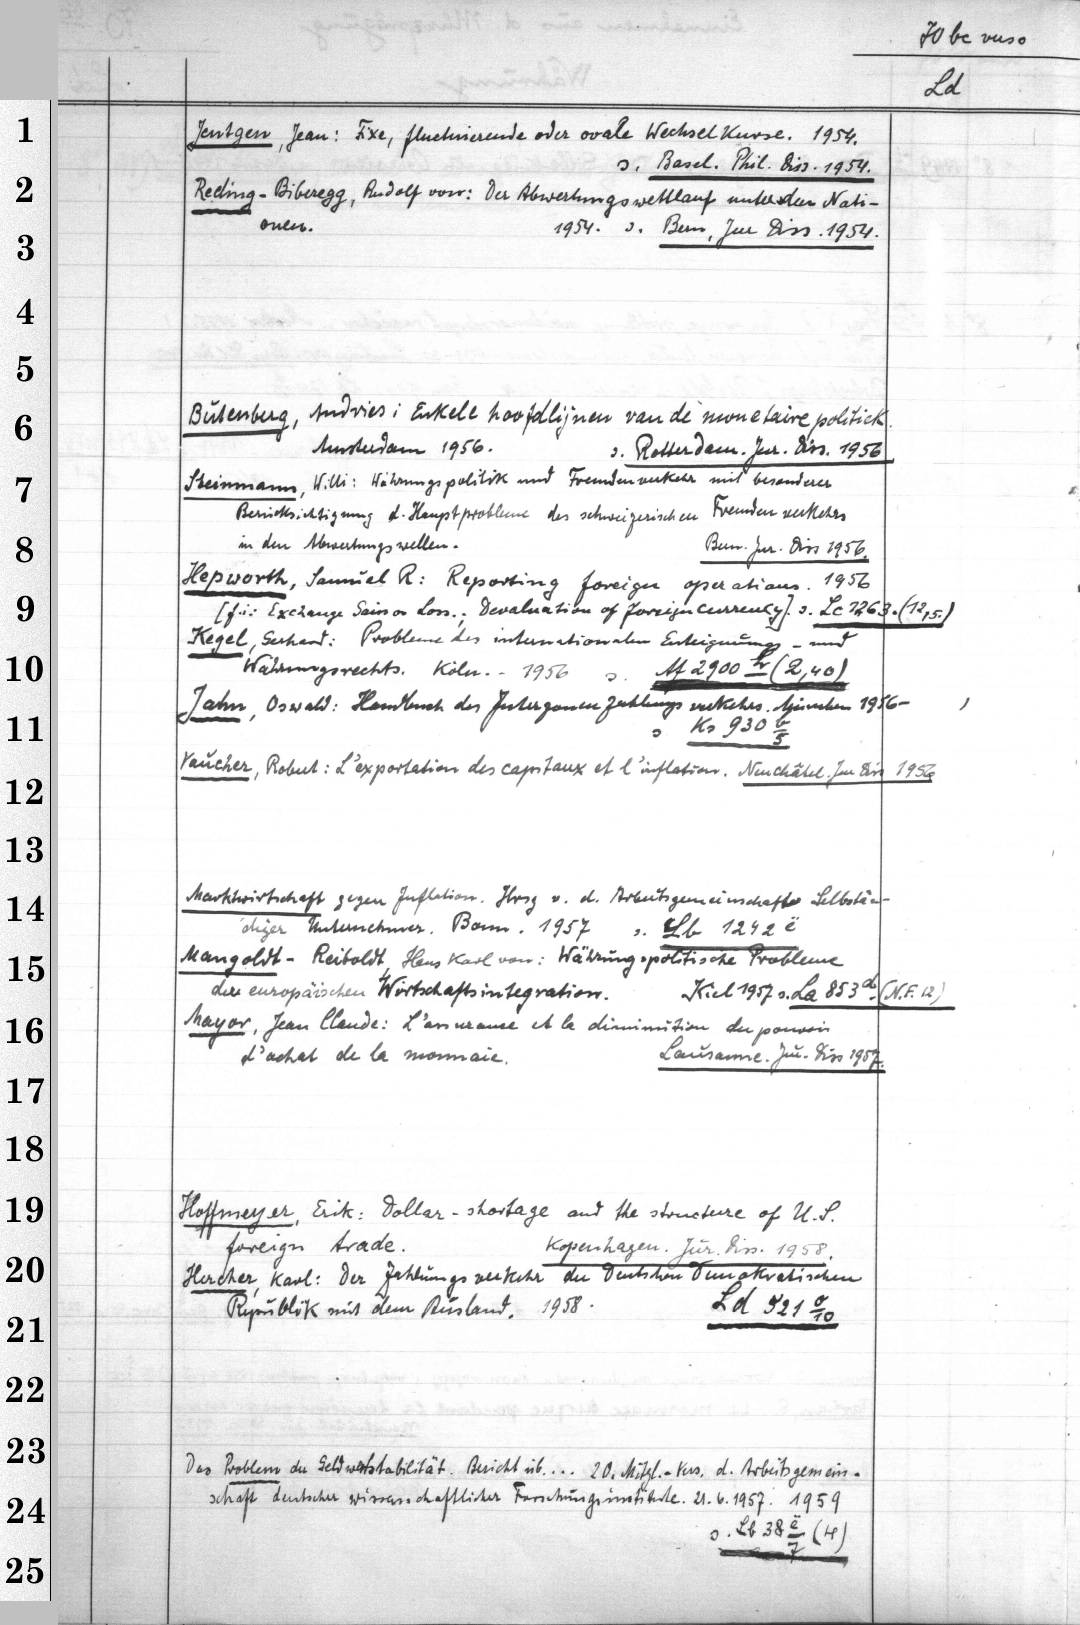 70 bc verso
Ld
1
Jentgen, Jean: Fixe, fluctuierende oder ovale Wechselkurse. 1954.
s. Basel. Phil. Diss. 1954.
2
Reding-Biberegg, Rudolf von: Der Abwertungswettlauf unter den Nati-
onen. 1954. s. Bern, Jur Diss. 1954.
3
4
5
6
Bütenberg, Andries: Enkele hoofdlijnen van de monetaire politick.
Amsterdam 1956. s. Rotterdam. Jur. Diss. 1956
7
Steinmann, Willi: Währungspolitik und Fremdenverkehr mit besonderer
Berücksichtigung d. Hauptprobleme des schweizerischen Fremdenverkehrs
8
in den Abwertungswellen. Bern. Jur. Diss 1956.
Hepworth, Samuel R: Reporting foreign operations. 1956
9
[f.i: Exchange Gain or Loss.; Devaluation of foreign currency]. s. Lc 1263.(12,5.)
Kegel, Gerhard: Probleme des internationalen Enteignungs- und
10
Währungsrechts. Köln. - 1956 s. Af 2900 hr (2,40)
Jahn, Oswald: Handbuch des Interzonenzahlungsverkehrs. München 1956-
11
s Ks 930 b/5
Vaucher, Robert: L'exportation des capitaux et l'inflation. Neuchâtel. Jur Diss 1956
12
13
14
Marktwirtschaft gegen Inflation. Hrsg v. d. Arbeitsgemeinschaft Selbstän-
diger Unternehmer. Bonn. 1957 s. Lb 1242 ë
15
Mangoldt-Reiboldt, Hans Karl von: Währungspolitische Probleme
der europäischen Wirtschaftsintegration. Kiel 1957 s. La 853 d (N.F. 12)
16
Mayor, Jean Claude: L'assurance et la diminution du pouvoir
d'achat de la monnaie. Lausanne. Jur. Diss 1957.
17
18
19
Hoffmeyer, Erik: Dollar-shortage and the structure of U.S.
foreign trade. Kopenhagen. Jur. Diss. 1958.
20
Hercher, Karl: Der Zahlungsverkehr der Deutschen Demokratischen
Republik mit dem Ausland. 1958. Ld 521 o/10
21
22
23
Das Problem der Geldwertstabilität. Bericht üb.... 20. Mitgl.-Vers. d. Arbeitsgemein-
schaft deutscher wissenschaftlicher Forschungsinstitute. 21.6.1957. 1959
24
s. Lb 38 ë/7 (4)
25